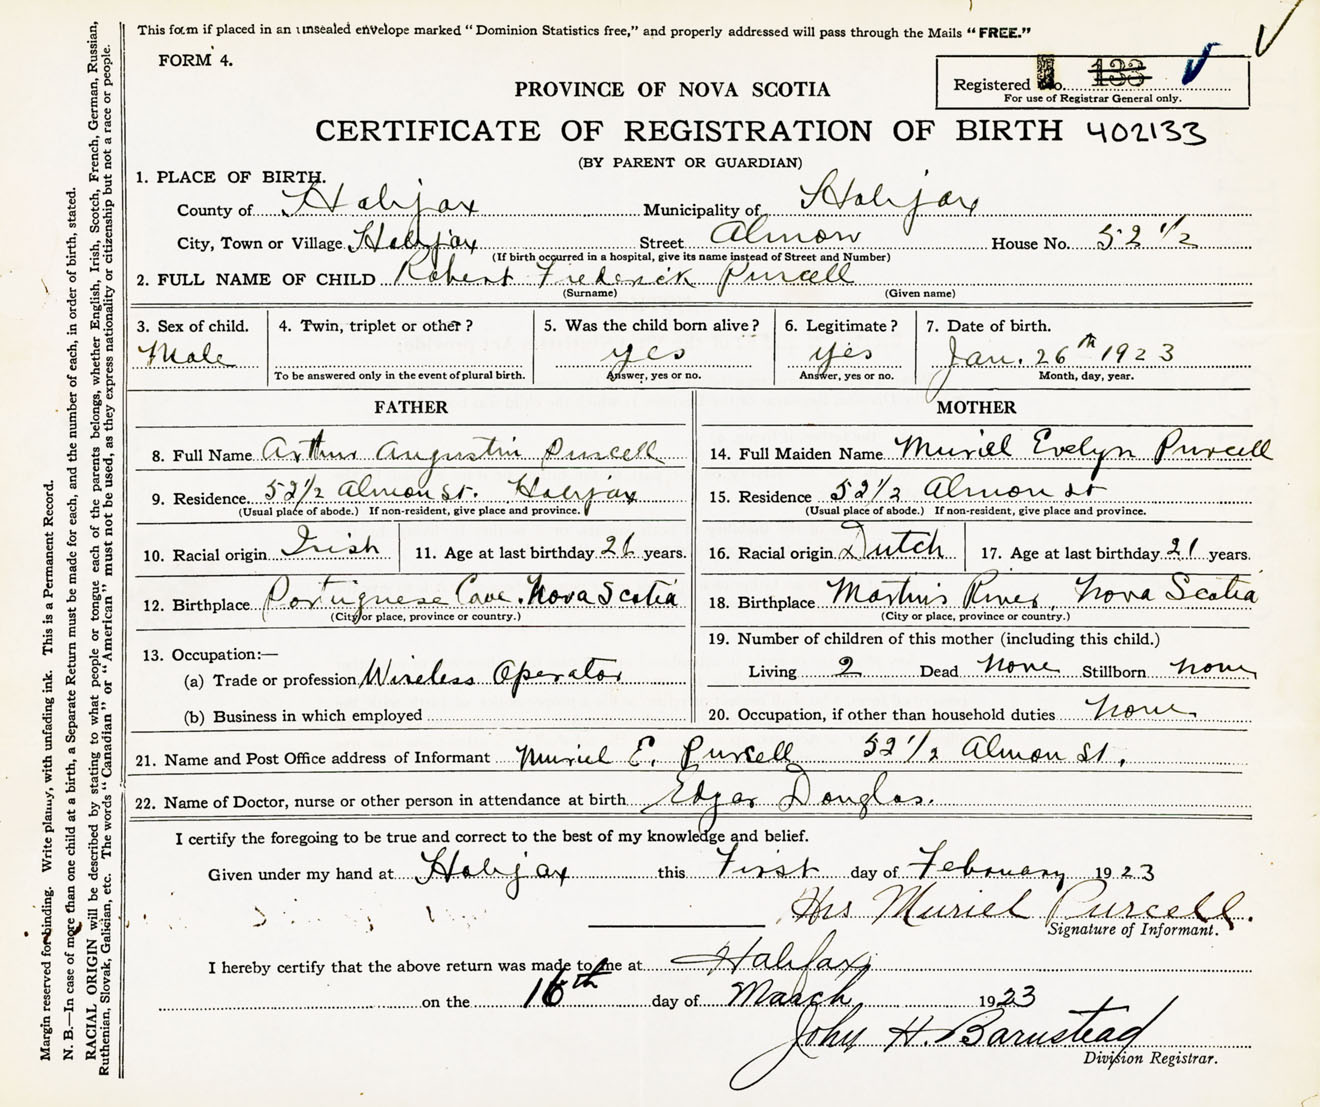 This form if placed in an unsealed envelope marked "Dominion Statistics free," and properly addressed will pass through the Mails "FREE."
FORM 4.
Registered No. 133
For use of Registrar General only.
PROVINCE OF NOVA SCOTIA
CERTIFICATE OF REGISTRATION OF BIRTH 402133
(BY PARENT OR GUARDIAN)
1. PLACE OF BIRTH.
County of Halifax Municipality of Halifax
City, Town or Village Halifax Street Almon House No. 52 1/2
(If birth occurred in a hospital, give its name instead of Street and Number)
2. FULL NAME OF CHILD Robert Frederick Purcell
(Surname) (Given name)
3. Sex of child. 4. Twin, triplet or other? 5. Was the child born alive? 6. Legitimate? 7. Date of birth.
Male yes yes Jan. 26th 1923
To be answered only in the event of plural birth. Answer, yes or no. Answer, yes or no. Month, day, year.
FATHER
8. Full Name Arthur Augustin Purcell
9. Residence 52 1/2 Almon St. Halifax
(Usual place of abode.) If non-resident, give place and province.
10. Racial origin Irish 11. Age at last birthday 26 years.
12. Birthplace Portuguese Cove. Nova Scotia
(City or place, province or country.)
13. Occupation:—
(a) Trade or profession Wireless Operator
(b) Business in which employed
MOTHER
14. Full Maiden Name Muriel Evelyn Purcell
15. Residence 52 1/2 Almon St
(Usual place of abode.) If non-resident, give place and province.
16. Racial origin Dutch 17. Age at last birthday 21 years.
18. Birthplace Martins River, Nova Scotia
(City or place, province or country.)
19. Number of children of this mother (including this child.)
Living 2 Dead None Stillborn none
20. Occupation, if other than household duties none
21. Name and Post Office address of Informant Muriel E. Purcell 52 1/2 Almon St.
22. Name of Doctor, nurse or other person in attendance at birth Edgar Douglas.
I certify the foregoing to be true and correct to the best of my knowledge and belief.
Given under my hand at Halifax this First day of February 1923
Mrs Muriel Purcell.
Signature of Informant.
I hereby certify that the above return was made to me at Halifax
on the 16th day of March 1923
John H. Barnstead
Division Registrar.
Margin reserved for binding. Write plainly, with unfading ink. This is a Permanent Record.
N. B.—In case of more than one child at a birth, a Separate Return must be made for each, and the number of each, in order of birth, stated.
RACIAL ORIGIN will be described by stating to what people or tongue each of the parents belongs, whether English, Irish, Scotch, French, German, Russian,
Ruthenian, Slovak, Galician, etc. The words "Canadian" or "American" must not be used, as they express nationality or citizenship but not a race or people.